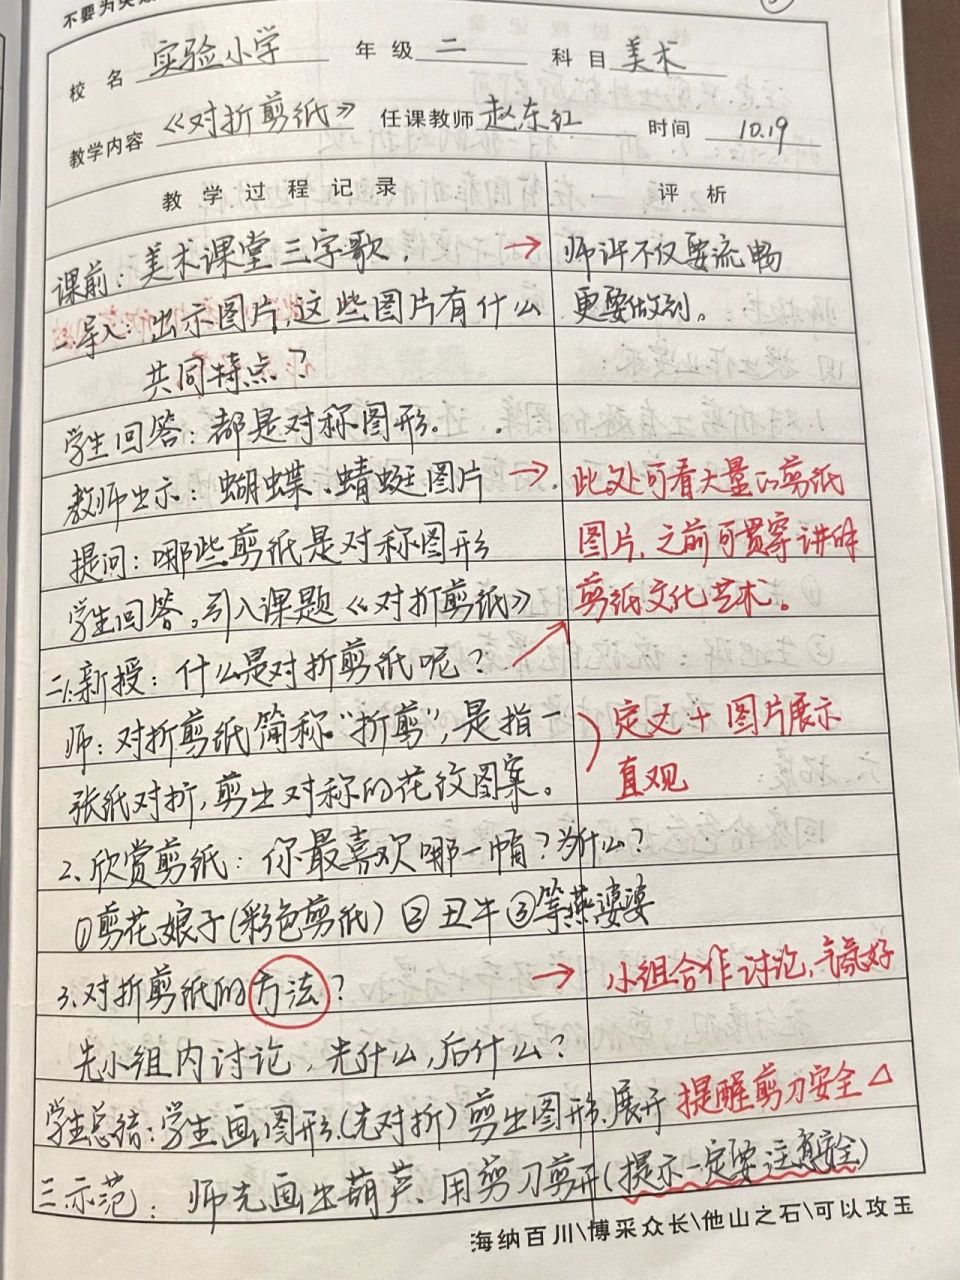 不要为失
校 名 实验小学 年 级 二 科 目 美术
教学内容 《对折剪纸》 任课教师 赵东红 时间 10.19
教 学 过 程 记 录 评 析
课前：美术课堂三字歌. → 师评不仅要流畅
一.导入：出示图片,这些图片有什么 更要做到。
共同特点？
学生回答：都是对称图形.
教师出示：蝴蝶、蜻蜓图片 → 此处可看大量的剪纸
提问：哪些剪纸是对称图形 图片,之前可贯穿讲解
学生回答,引入课题《对折剪纸》 剪纸文化艺术。
二1.新授：什么是对折剪纸呢？
师：对折剪纸简称"折剪",是指一 定义+图片展示
张纸对折,剪出对称的花纹图案。 直观
2.欣赏剪纸：你最喜欢哪一幅？为什么？
①剪花娘子(彩色剪纸) ②丑牛③等燕婆婆
3.对折剪纸的方法？ → 小组合作讨论,气氛好
先小组内讨论,先什么,后什么？
学生总结：学生画图形.(先对折)剪出图形.展开 提醒剪刀安全△
三示范：师先画出葫芦、用剪刀剪开(提示一定要注意安全)
海纳百川\博采众长\他山之石\可以攻玉